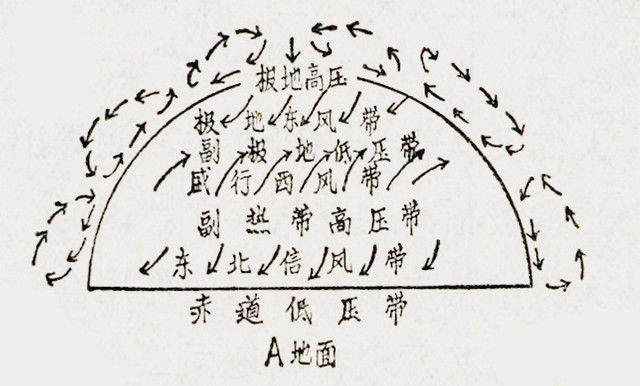 极地高压
极地东风带
副极地低压带
盛行西风带
副热带高压带
东北信风带
赤道低压带
A地面